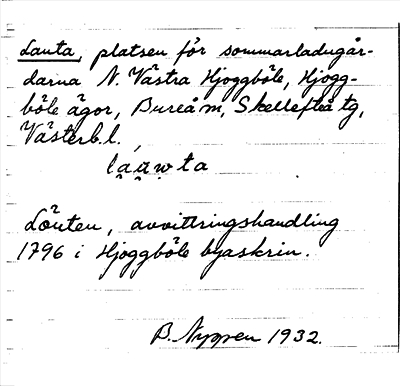 Lauta, platsen för sommarladugår-
darna N. Västra Hjoggböle, Hjogg-
böle ägor, Bureå m, Skellefteå tg,
Västerb.l.
la̯ṳw̤ta
Löuten, avvittringshandling
1796 i Hjoggböle byaskrin.
B. Nygren 1932.